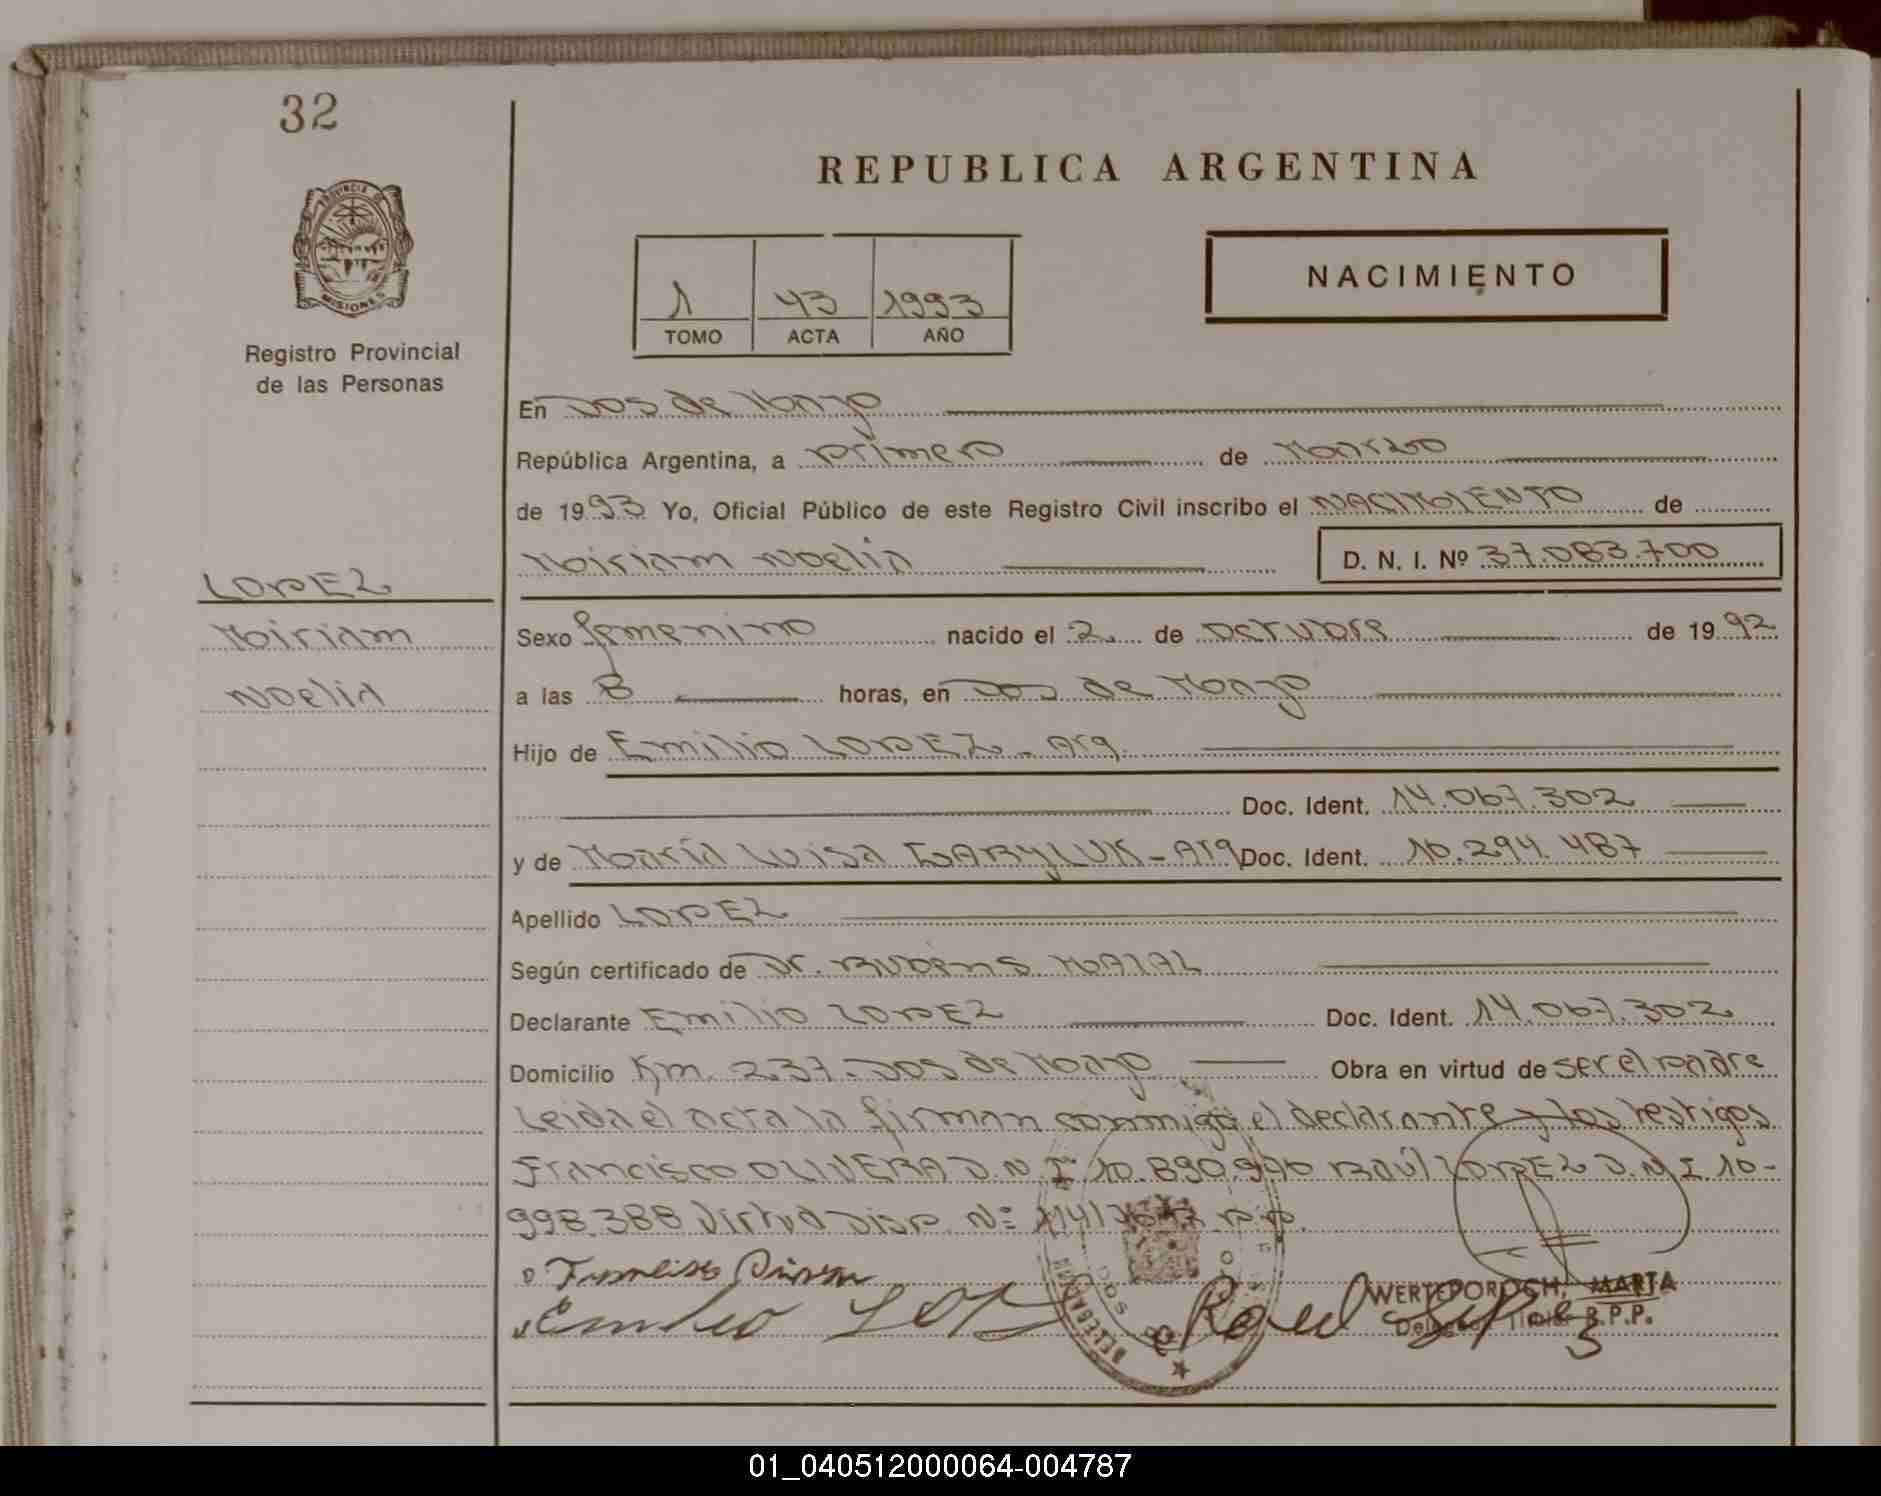 32
REPUBLICA ARGENTINA
PROVINCIA
MISIONES
Registro Provincial
de las Personas
1 43 1993
TOMO ACTA AÑO
NACIMIENTO
En Dos de Mayo
República Argentina, a primero de Marzo
de 1993 Yo, Oficial Público de este Registro Civil inscribo el NACIMIENTO de
Miriam Noelia D. N. I. Nº 37.083.700
LOPEZ
Miriam
Noelia
Sexo femenino nacido el 2 de octubre de 1992
a las 8 horas, en Dos de Mayo
Hijo de Emilio LOPEZ - Arg.
Doc. Ident. 14.067.302
y de María Luisa GABYLUK - Arg Doc. Ident. 10.294.487
Apellido LOPEZ
Según certificado de Dr. Rubens
Declarante Emilio LOPEZ Doc. Ident. 14.067.302
Domicilio Km. 237. Dos de Mayo Obra en virtud de ser el padre
Leida el acta la firman conmigo el declarante y los testigos
Francisco OLIVERA D.N.I 10.890.970 Raúl LOPEZ D.N.I. 10-
998.388 Virtud Disp. Nº
Emilio Raul
WERTEPOROCH, MARTA
R.P.P.
01_040512000064-004787